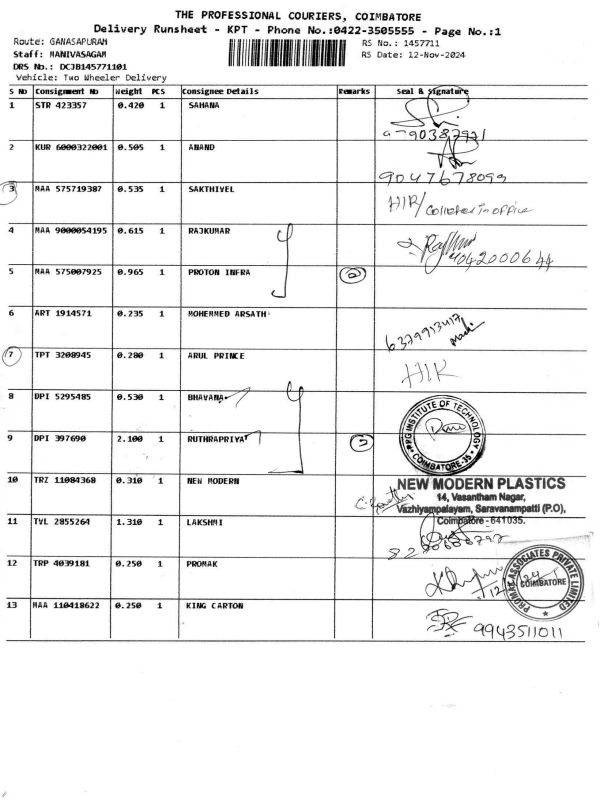 THE PROFESSIONAL COURIERS, COIMBATORE
Delivery Runsheet - KPT - Phone No.:0422-3505555 - Page No.:1
Route: GANASAPURAM RS No.: 1457711
Staff: MANIVASAGAM RS Date: 12-Nov-2024
DRS No.: DCJB145771101
Vehicle: Two Wheeler Delivery
S No Consignment No Weight PCS Consignee Details Remarks Seal & Signature
1 STR 423357 0.420 1 SAHANA
2 KUR 6000322001 0.505 1 ANAND
9047678099
3 MAA 575719387 0.535 1 SAKTHIVEL HIR/ Collected in office
4 MAA 9000054195 0.615 1 RAJKUMAR
5 MAA 575007925 0.965 1 PROTON INFRA 2
6 ART 1914571 0.235 1 MOHEMMED ARSATH
7 TPT 3208945 0.280 1 ARUL PRINCE HIR
8 DPI 5295485 0.530 1 BHAVANA
PPG INSTITUTE OF TECHNOLOGY COIMBATORE-35
9 DPI 397690 2.100 1 RUTHRAPRIYA 2
10 TRZ 11084368 0.310 1 NEW MODERN
NEW MODERN PLASTICS
14, Vasantham Nagar,
Vazhiyampalayam, Saravanampatti (P.O),
Coimbatore - 641035.
11 TVL 2855264 1.310 1 LAKSHMI
12 TRP 4039181 0.250 1 PROMAK
PROMAK ASSOCIATES PRIVATE LIMITED COIMBATORE
13 MAA 110418622 0.250 1 KING CARTON
9943511011